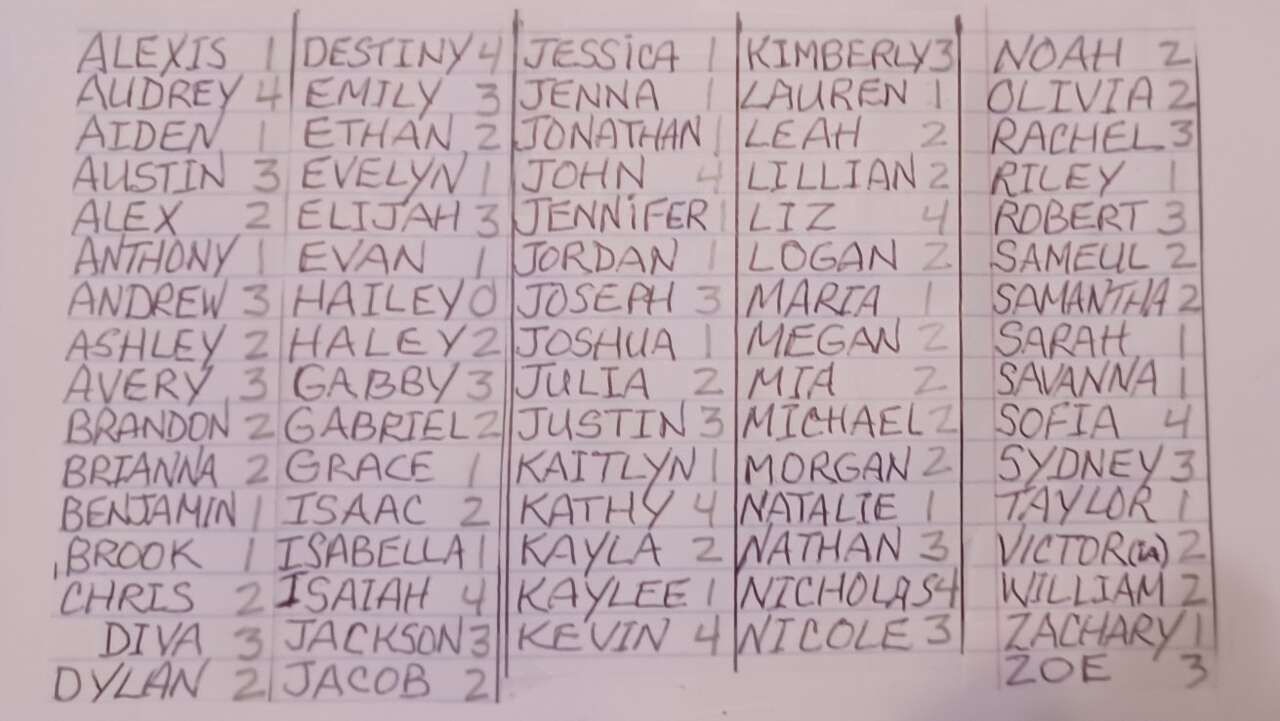 ALEXIS 1 DESTINY 4 JESSiCA 1 KIMBERLY 3 NOAH 2
AUDREY 4 EMILY 3 JENNA 1 LAUREN 1 OLIVIA 2
AIDEN 1 ETHAN 2 JONATHAN 1 LEAH 2 RACHEL 3
AUSTIN 3 EVELYN 1 JOHN 4 LILLIAN 2 RILEY 1
ALEX 2 ELIJAH 3 JENNiFER 1 LIZ 4 ROBERT 3
ANTHONY 1 EVAN 1 JORDAN 1 LOGAN 2 SAMEUL 2
ANDREW 3 HAILEY 0 JOSEPH 3 MARIA 1 SAMANTHA 2
ASHLEY 2 HALEY 2 JOSHUA 1 MEGAN 2 SARAH 1
AVERY 3 GABBY 3 JULIA 2 MIA 2 SAVANNA 1
BRANDON 2 GABRIEL 2 JUSTIN 3 MICHAEL 2 SOFIA 4
BRIANNA 2 GRACE 1 KAITLYN 1 MORGAN 2 SYDNEY 3
BENJAMIN 1 ISAAC 2 KATHY 4 NATALIE 1 TAYLOR 1
BROOK 1 ISABELLA 1 KAYLA 2 NATHAN 3 VICTOR(ia) 2
CHRIS 2 ISAIAH 4 KAYLEE 1 NICHOLAS 4 WILLIAM 2
DIVA 3 JACKSON 3 KEVIN 4 NICOLE 3 ZACHARY 1
DYLAN 2 JACOB 2 ZOE 3